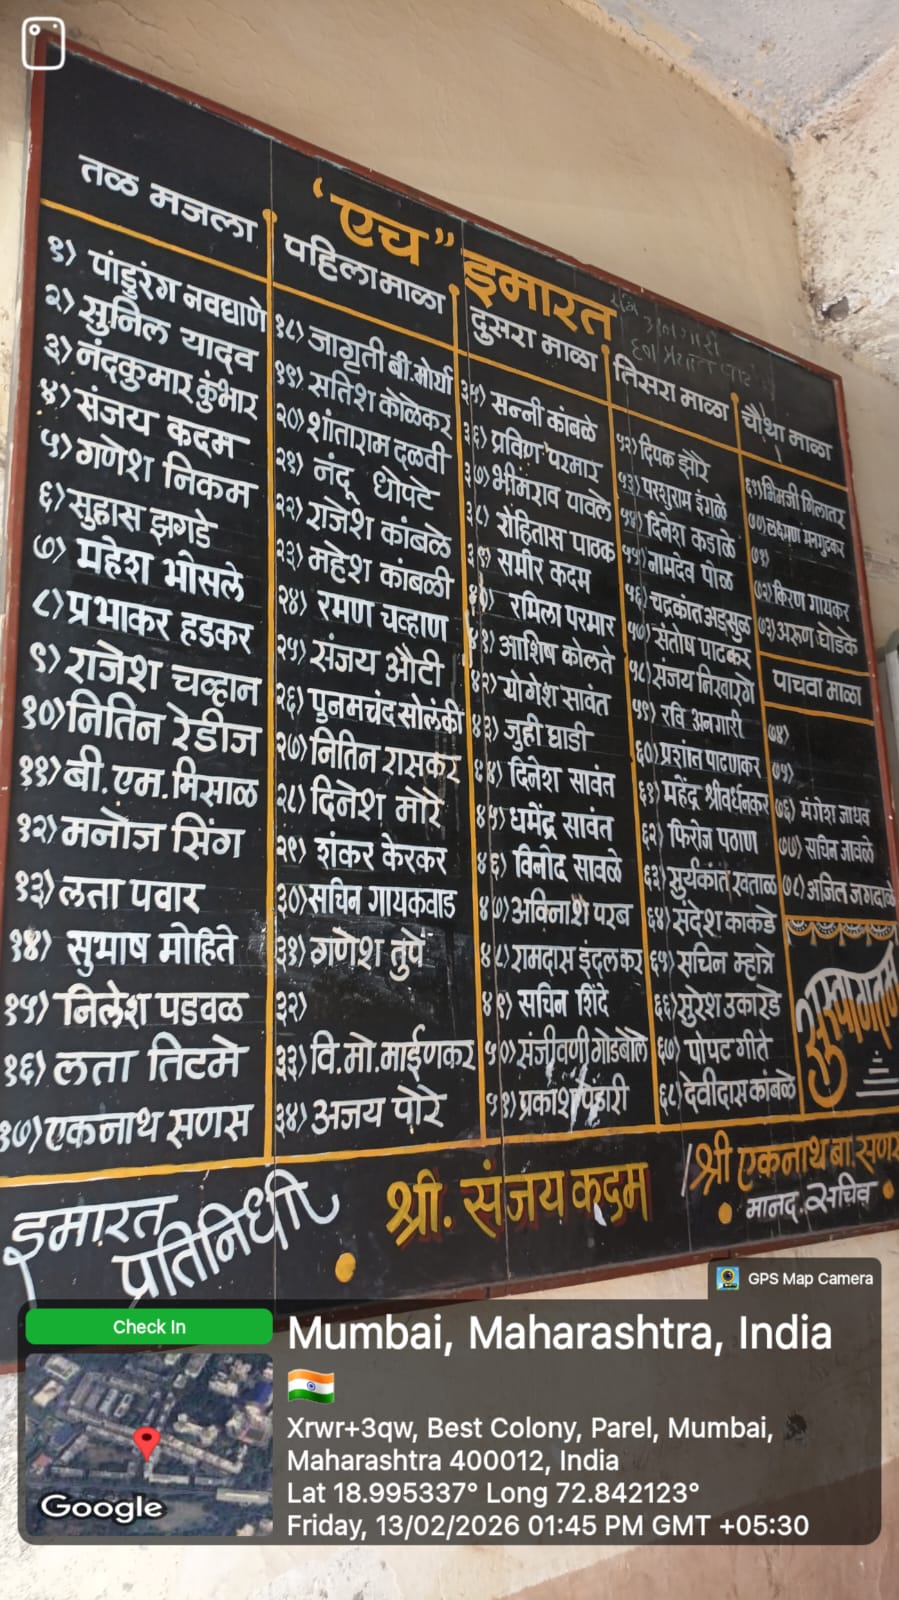 ‘‘एच’’ इमारत
तळ मजला
१) पांडुरंग नवघाणे
२) सुनिल यादव
३) नंदकुमार कुंभार
४) संजय कदम
५) गणेश निकम
६) सुहास झगडे
७) महेश भोसले
८) प्रभाकर हडकर
९) राजेश चव्हान
१०) नितिन रेडीज
११) बी.एम.मिसाळ
१२) मनोज सिंग
१३) लता पवार
१४) सुभाष मोहिते
१५) निलेश पडवळ
१६) लता तिटमे
१७) एकनाथ सणस
पहिला माळा
१८) जागृती बी.मोर्या
१९) सतिश कोळेकर
२०) शांताराम दळवी
२१) नंदू धोपटे
२२) राजेश कांबळे
२३) महेश कांबळी
२४) रमण चव्हाण
२५) संजय औटी
२६) पुनमचंद सोलंकी
२७) नितिन रासकर
२८) दिनेश मोरे
२९) शंकर केरकर
३०) सचिन गायकवाड
३१) गणेश तुपे
३२)
३३) वि.मो.माईणकर
३४) अजय पोरे
दुसरा माळा
३५) सन्नी कांबळे
३६) प्रविण परमार
३७) भीमराव पावले
३८) रोहितास पाठक
३९) समीर कदम
४०) रमिला परमार
४१) आशिष कोलते
४२) योगेश सावंत
४३) जुही घाडी
४४) दिनेश सावंत
४५) धर्मेंद्र सावंत
४६) विनोद सावळे
४७) अविनाश परब
४८) रामदास इंदलकर
४९) सचिन शिंदे
५०) संजीवणी गोडबोले
५१) प्रकाश पंडारी
तिसरा माळा
५२) दिपक झोरे
५३) परशुराम इंगळे
५४) दिनेश कडाळे
५५) नामदेव पोळ
५६) चद्रकांत अडसुळ
५७) संतोष पाटकर
५८) संजय निखारगे
५९) रवि अनगारी
६०) प्रशांत पाटणकर
६१) महेंद्र श्रीवर्धनकर
६२) फिरोज पठाण
६३) सुर्यकांत खताळ
६४) संदेश काकडे
६५) सचिन म्हात्रे
६६) सुरेश उकारडे
६७) पोपट गीते
६८) देवीदास कांबळे
चौथा माळा
६९) भिमजी गिलातर
७०) लक्ष्मण मनगुटकर
७१)
७२) किरण गायकर
७३) अरुण घोडके
पाचवा माळा
७४)
७५)
७६) मंगेश जाधव
७७) सचिन जावळे
७८) अजित जगदाळे
सुस्वागतम
इमारत
प्रतिनिधी
श्री. संजय कदम
श्री एकनाथ बा. सणस
मानद. सचिव
GPS Map Camera
Check In
Google
Mumbai, Maharashtra, India
Xrwr+3qw, Best Colony, Parel, Mumbai,
Maharashtra 400012, India
Lat 18.995337° Long 72.842123°
Friday, 13/02/2026 01:45 PM GMT +05:30